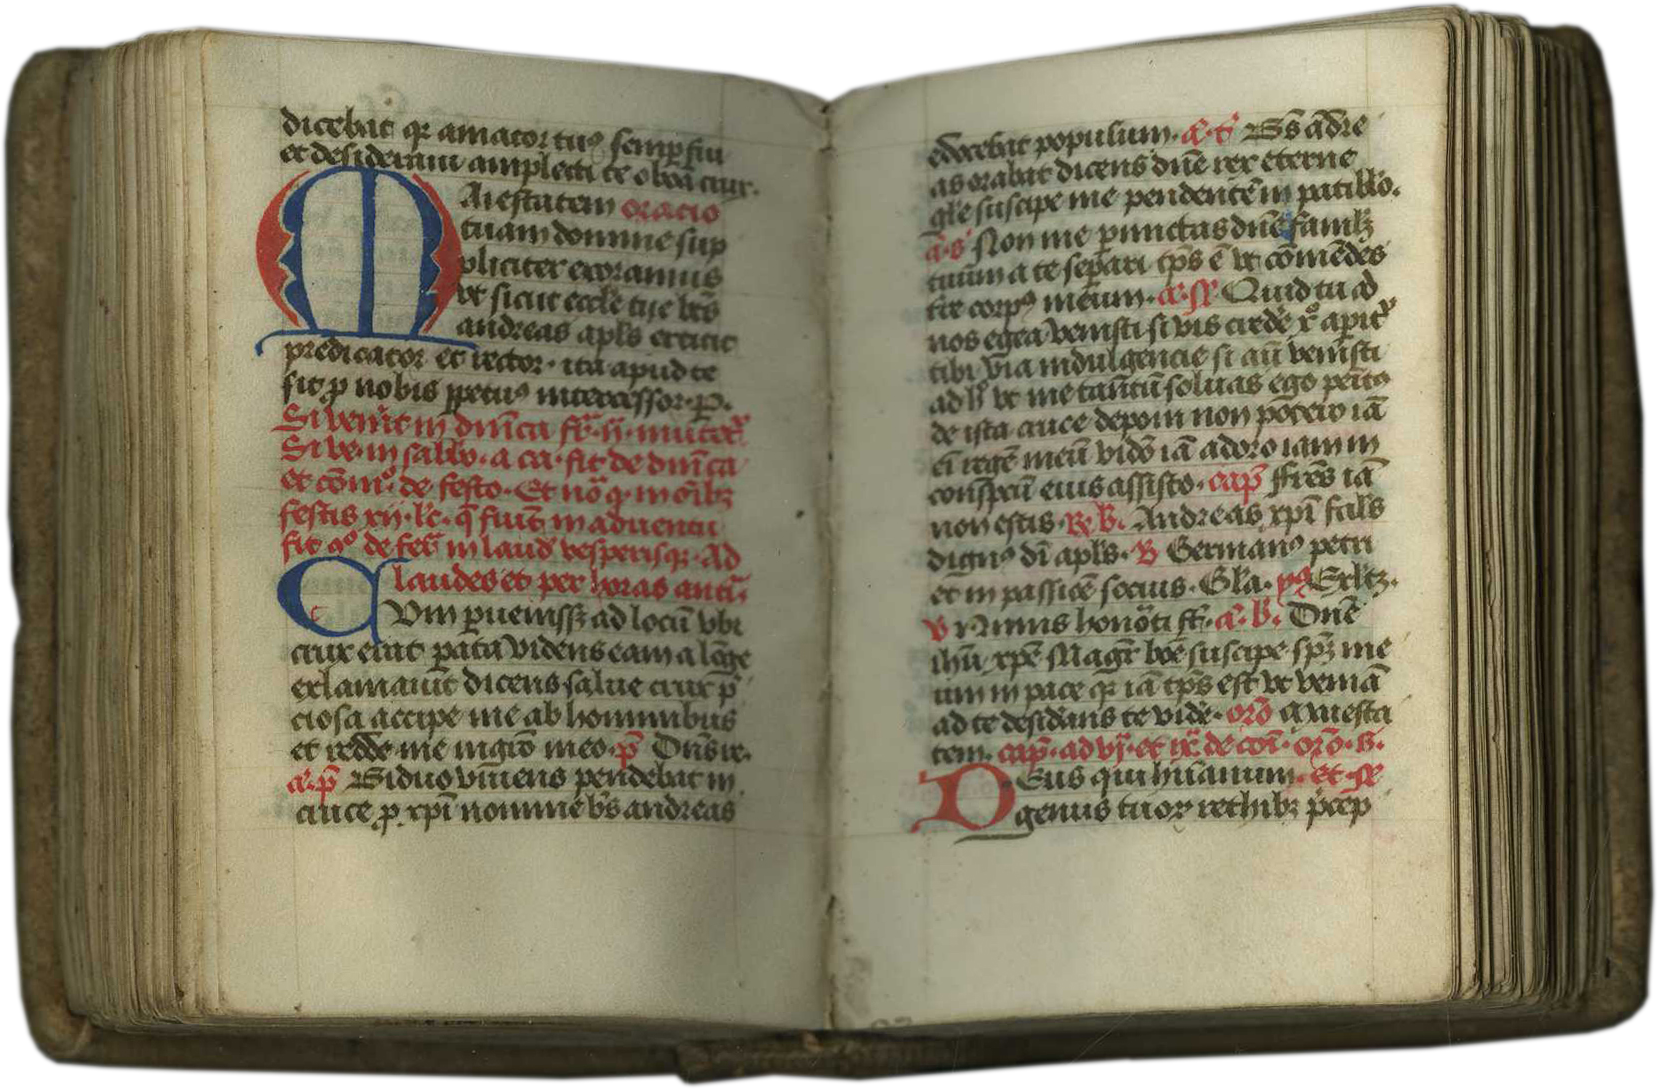 dicebat qr amator tuꝰ semp̲ fui
et desideraui amplecti te o bōa crux.
Maiestatem oracio
tuam domine sup
pliciter exoramus
vt sicut eccl̄e tue bt̄s
andreas apl̄s extitit
predicator et rector. ita apud te
sit ꝓ nobis ꝑpetuꝰ intercessor. P̲.
Si ven̄it in dn̄ica
Si ve. in sabbo. a ca. fit de dn̄ica
et com̄. de festo. Et no q̲ in oīb
festis xij. lc̄. q̄ fiūt in aduentu
fit de fer̄ in laud vesperisqꝫ. Ad
laudes et per horas antī
Cum ꝑuenissꝫ ad locū vbi
crux erat ꝑata videns eam a lōge
exlamauit dicens salue crux p̄
ciosa accipe me ab hominibus
et redde me mgr̄o meo. p̄ Dn̄s re.
a. p̄ Biduo viuens pendebat in
cruce ꝓ xp̄i nomine bt̄s andreas
edocebat populum. a. t̄ Bt̄s ādre
as orabat dicens dn̄e rex eterne
gl̄e suscipe me pendentē in patibl̄o.
a. s Non me ꝑmittas dn̄e famlꝫ
tuum a te separi tp̄s ē vt cōmēdes
t̄re corpꝰ meum. a. sx Quid tu ad
nos egea venisti si vis credē xꝰ apit
tibi via indulgencie si aū venisti
ad hꝰ vt me tantū soluas ego
de ista cruce deponi non potero iā
ei regē meū vidō iā adoro iam in
conspcū eius assisto. cap̄ Ffrēs iā
non estis. R. B. Andreas xp̄i fal̄s
dignꝰ di apl̄s. V Germanꝰ petri
et in passiōe socius. Gl̄a. ys Exl̄tꝫ.
V Nimis honōti st̄. a. b. Dn̄e
ih̄u xp̄e Magr̄ boē suscipe sp̄ꝫ me
um in pace qr iā tp̄s est vt veniā
ad te desidāns te vidē. orō Maiesta
tem. cap̄. ad vj. et ix de cōi. orō. n.
Deus qui hūanum. et. sx
genus tuoꝝ rethibꝫ p̄cep